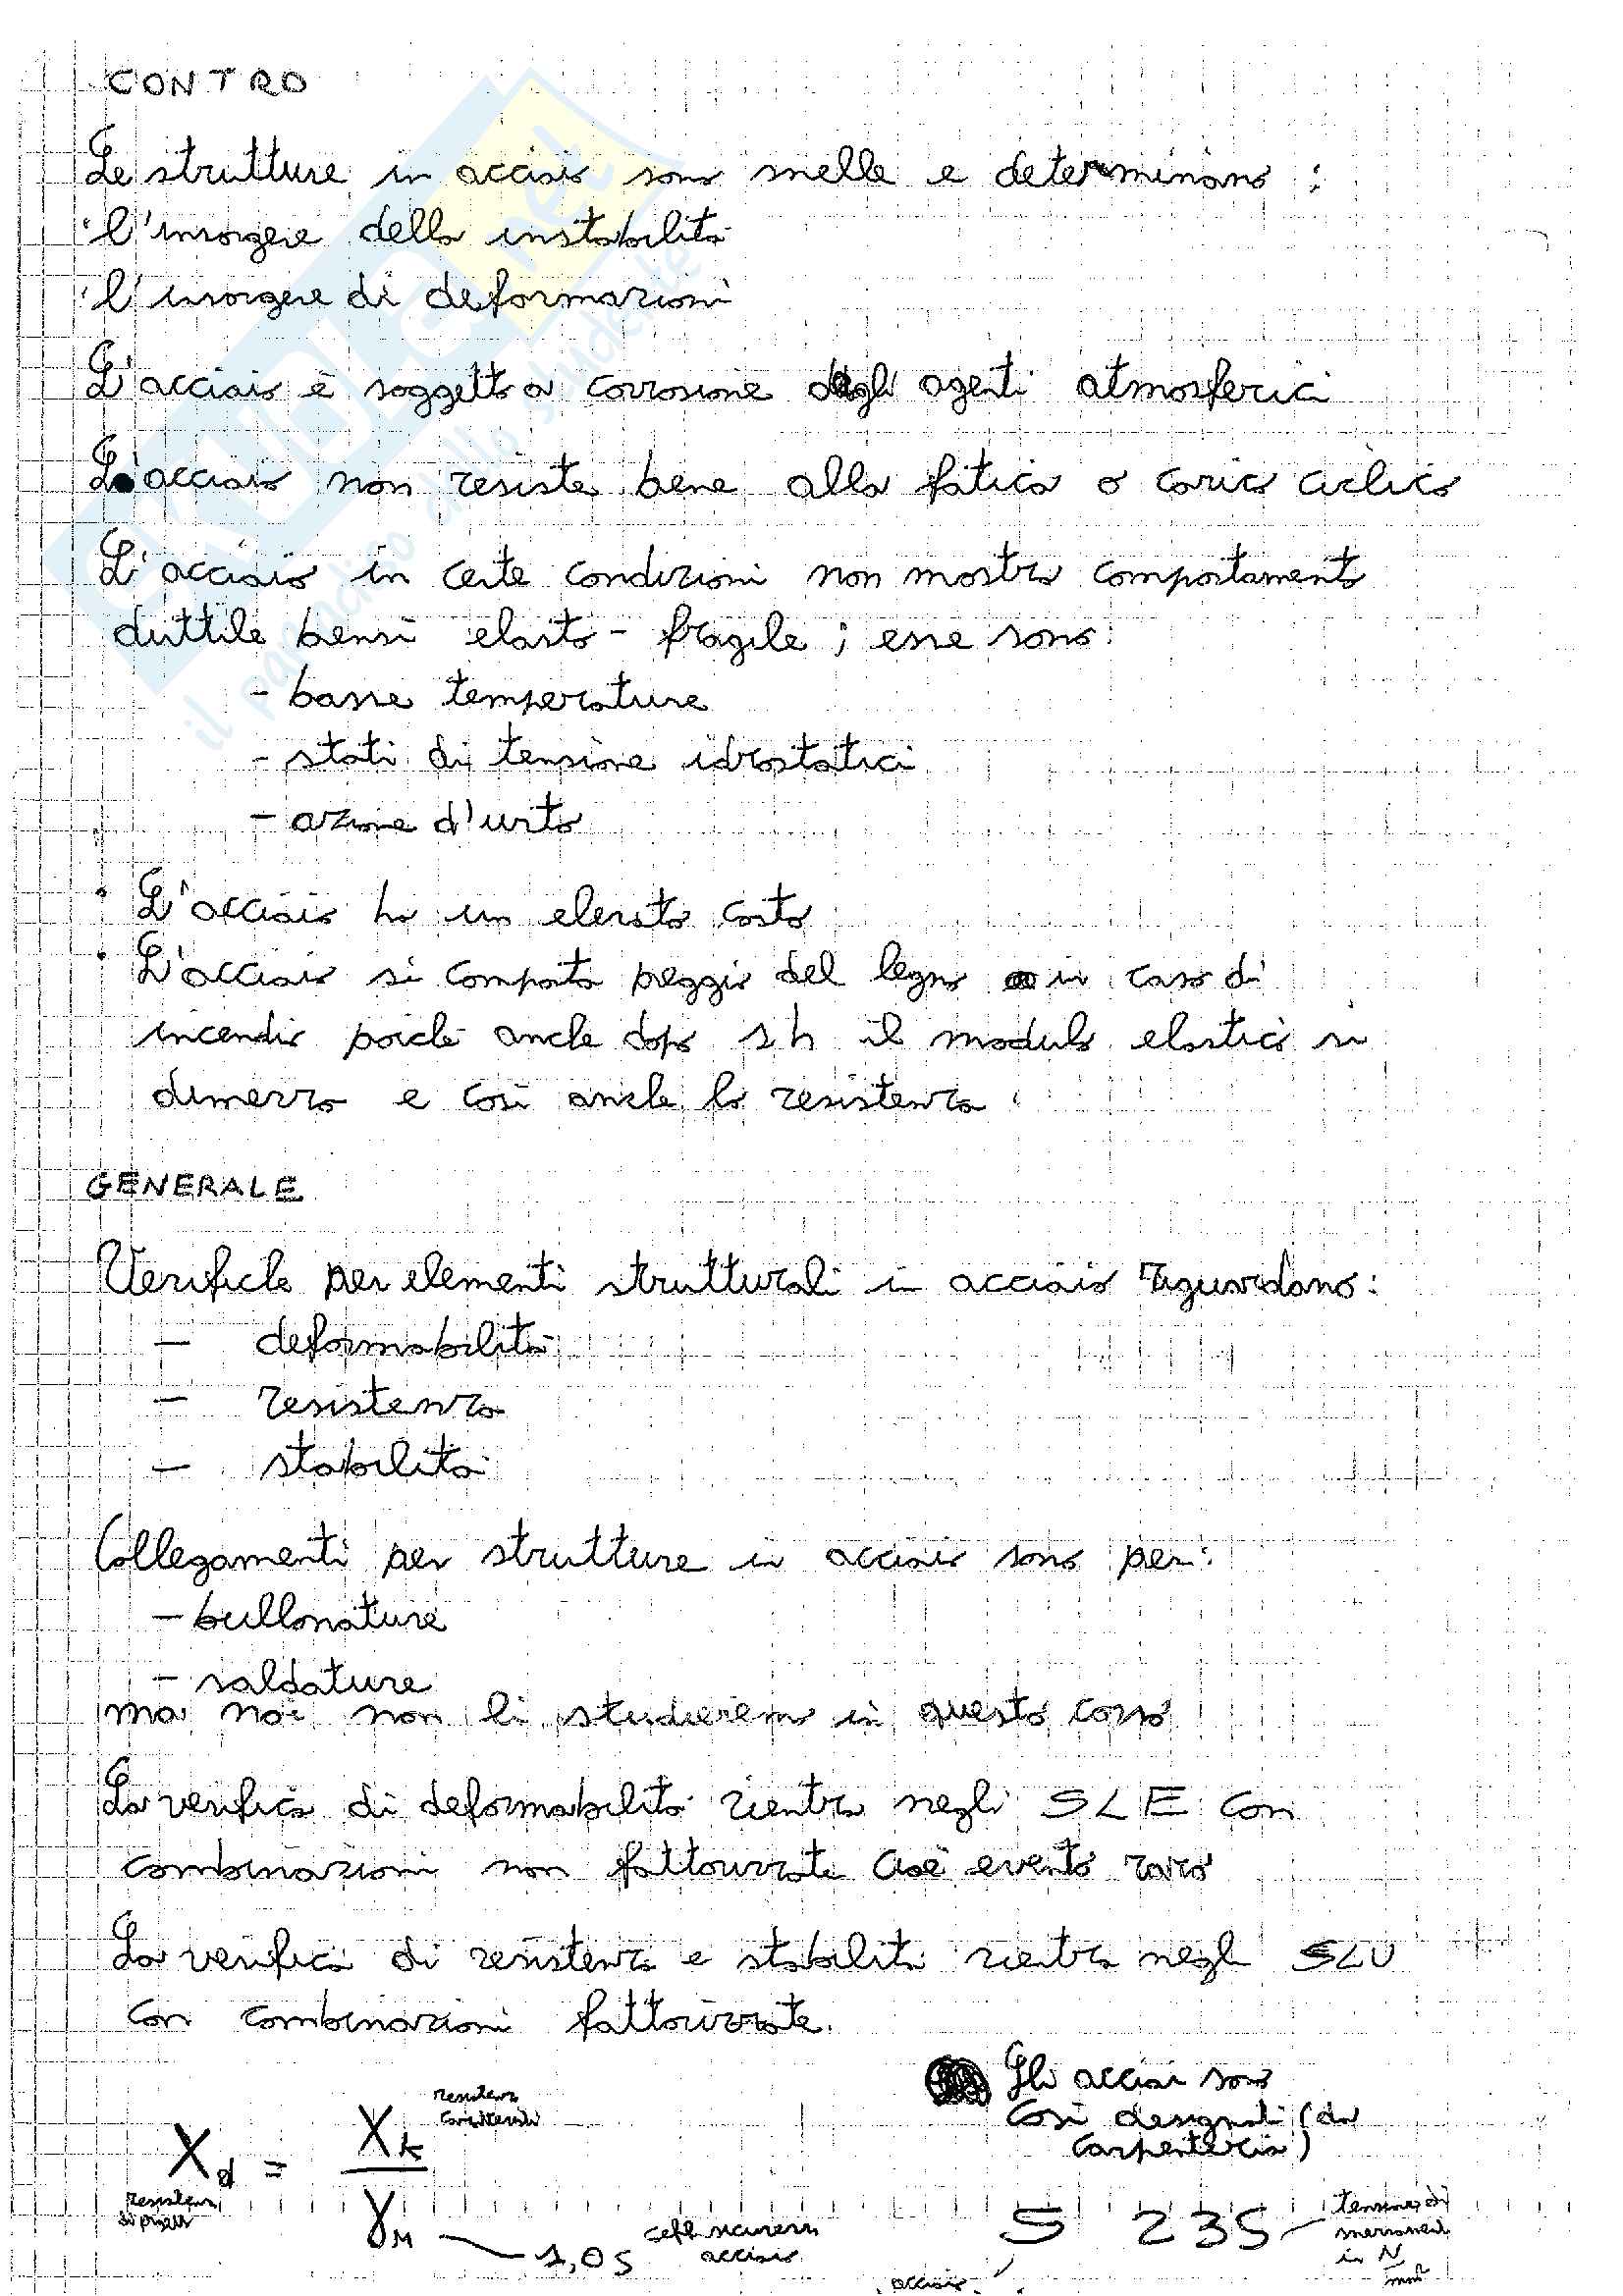 CONTRO
Le strutture in acciaio sono snelle e determinano :
· l'insorgere della instabilità
· l'insorgere di deformazioni
L'acciaio è soggetto a corrosione degli agenti atmosferici
L'acciaio non resiste bene alla fatica o carico ciclico
L'acciaio in certe condizioni non mostra comportamento
duttile bensì elasto - fragile ; esse sono:
- basse temperature
- stati di tensione idrostatici
- azione d'urto
· L'acciaio ha un elevato costo
· L'acciaio si comporta peggio del legno in caso di
incendio poiché anche dopo 1 h il modulo elastico si
dimezza e così anche la resistenza .
GENERALE
Verifiche per elementi strutturali in acciaio riguardano:
- deformabilità
- resistenza
- stabilità
Collegamenti per strutture in acciaio sono per:
- bullonature
- saldature
ma noi non li studieremo in questo corso
La verifica di deformabilità rientra negli SLE con
combinazioni non fattorizzate cioè evento raro
La verifica di resistenza e stabilità rientra negli SLU
con combinazioni fattorizzate.
Gli acciai sono
così designati (da
carpenteria)
X_d = X_k / γ_M
resistenza
caratteristica
resistenza
di progetto
1,05
coeff sicurezza
acciaio
S 235
tensione di
snervamento
in N/mm²
acciaio
il paradiso dello studente